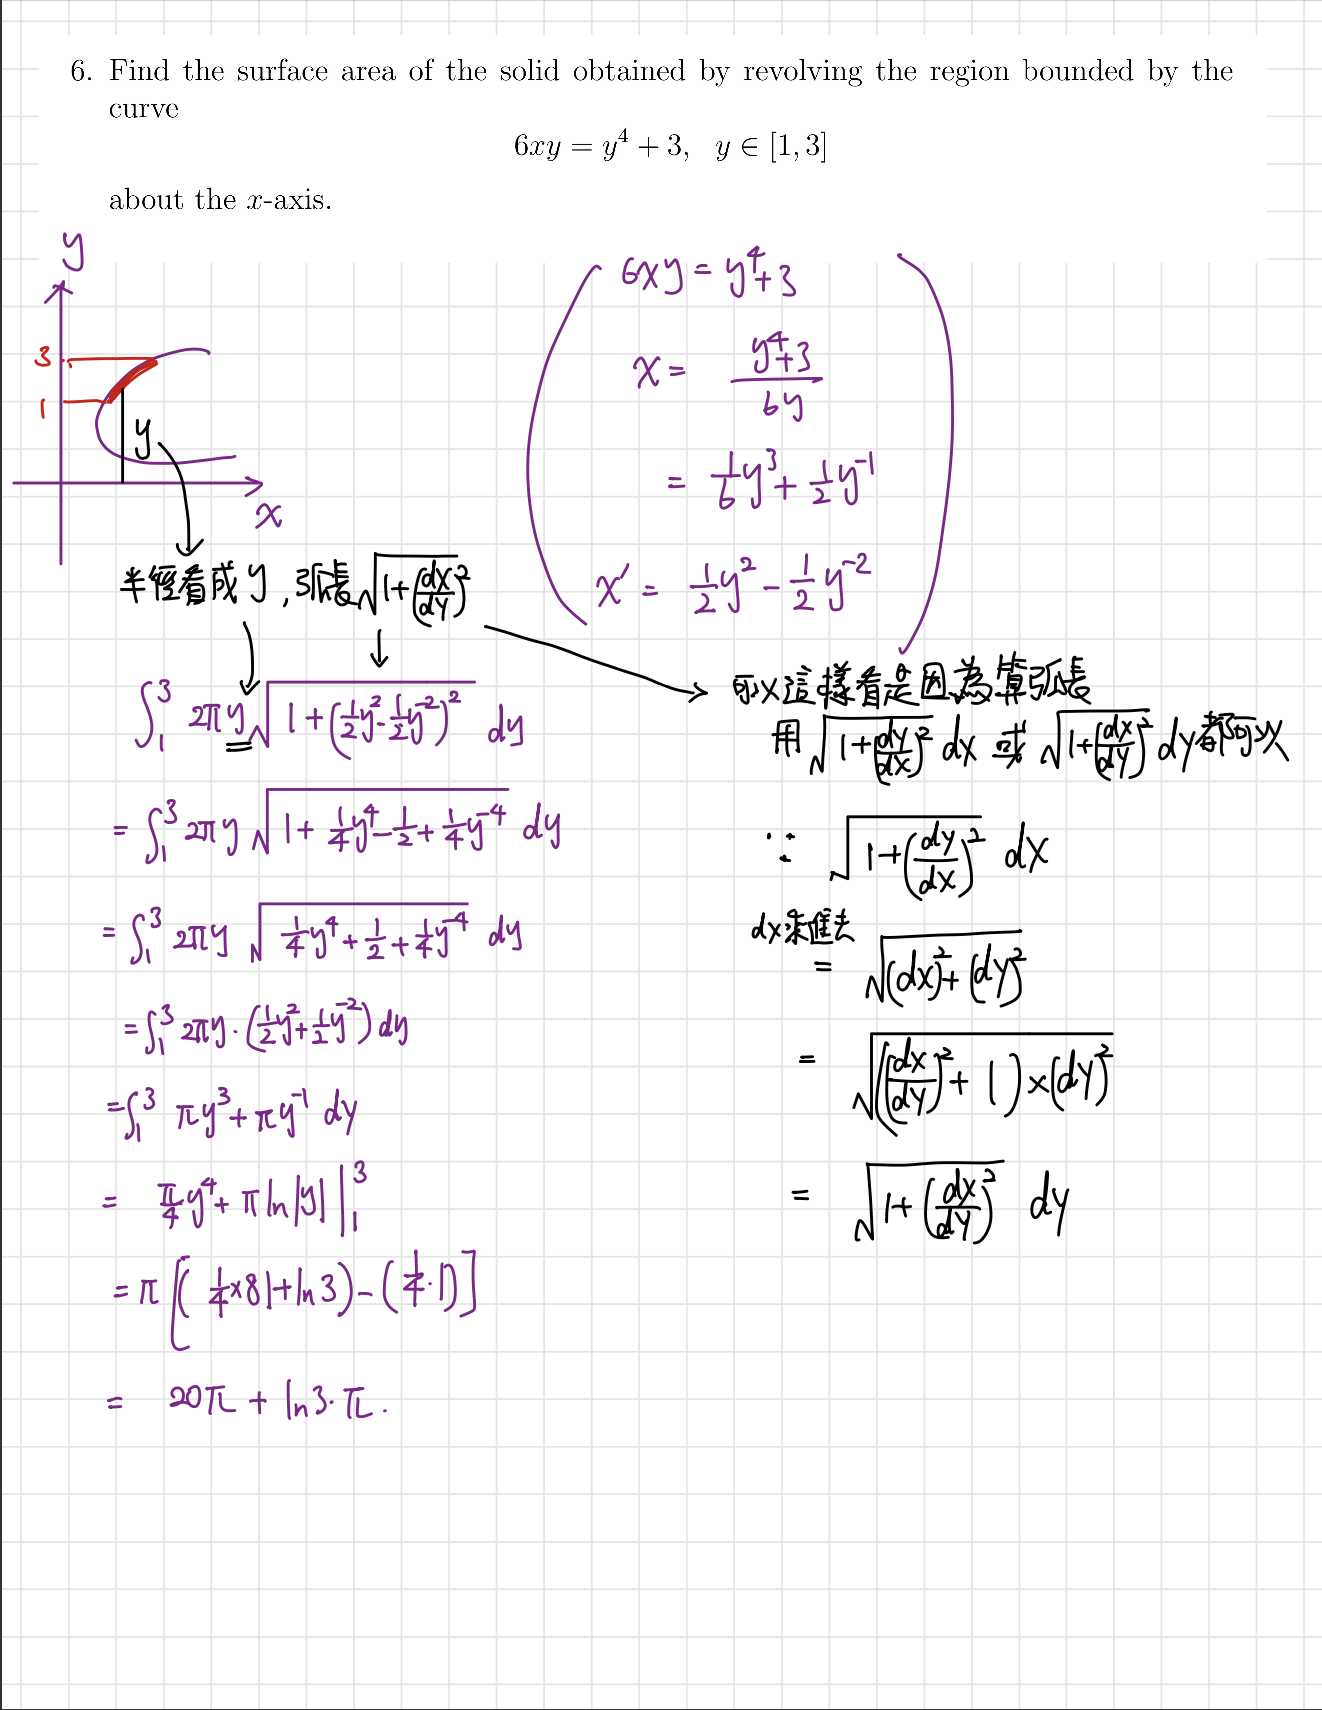 6. Find the surface area of the solid obtained by revolving the region bounded by the
curve
6xy = y⁴ + 3,  y ∈ [1, 3]
about the x-axis.
y
3
1
y
x
6xy = y⁴+3
x = (y⁴+3)/(6y)
= 1/6 y³ + 1/2 y⁻¹
x′ = 1/2 y² − 1/2 y⁻²
半徑看成 y , 弧長 √(1+(dx/dy)²)
∫₁³ 2πy √(1+(1/2 y² − 1/2 y⁻²)²) dy
= ∫₁³ 2πy √(1 + 1/4 y⁴ − 1/2 + 1/4 y⁻⁴) dy
= ∫₁³ 2πy √(1/4 y⁴ + 1/2 + 1/4 y⁻⁴) dy
= ∫₁³ 2πy · (1/2 y² + 1/2 y⁻²) dy
= ∫₁³ πy³ + πy⁻¹ dy
= π/4 y⁴ + π ln|y| |₁³
= π [(1/4 × 81 + ln 3) − (1/4 · 1)]
= 20π + ln3 · π .
可以這樣看是因為算弧長
用 √(1+(dy/dx)²) dx 或 √(1+(dx/dy)²) dy 都可以
∵ √(1+(dy/dx)²) dx
dx乘進去
= √((dx)² + (dy)²)
= √(((dx/dy)² + 1) × (dy)²)
= √(1 + (dx/dy)²) dy